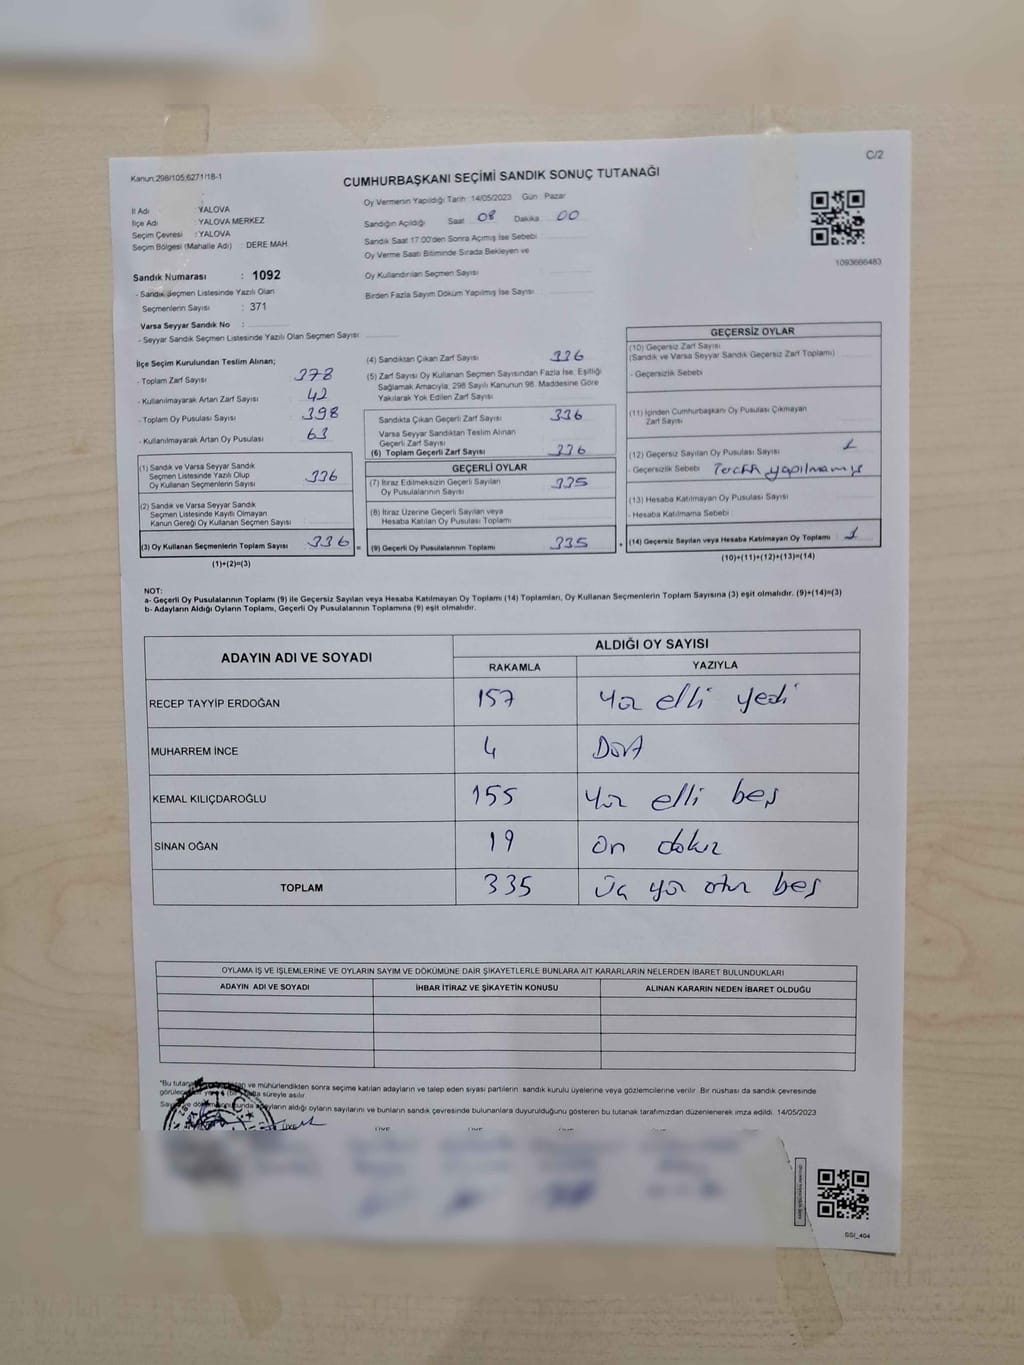 C/2
Kanun:298/105;6271/18-1
CUMHURBAŞKANI SEÇİMİ SANDIK SONUÇ TUTANAĞI
İl Adı : YALOVA
İlçe Adı : YALOVA MERKEZ
Seçim Çevresi : YALOVA
Seçim Bölgesi (Mahalle Adı) : DERE MAH.
Oy Vermenin Yapıldığı Tarih: 14/05/2023 Gün: Pazar
Sandığın Açıldığı Saat 08 Dakika 00
Sandık Saat 17:00'den Sonra Açımış İse Sebebi
Oy Verme Saati Bitiminde Sırada Bekleyen ve
Oy Kullandırılan Seçmen Sayısı
Birden Fazla Sayım Döküm Yapılmış İse Sayısı
1093666483
Sandık Numarası : 1092
- Sandık Seçmen Listesinde Yazılı Olan
Seçmenlerin Sayısı : 371
Varsa Seyyar Sandık No :
- Seyyar Sandık Seçmen Listesinde Yazılı Olan Seçmen Sayısı
İlçe Seçim Kurulundan Teslim Alınan;
- Toplam Zarf Sayısı 378
- Kullanılmayarak Artan Zarf Sayısı 42
- Toplam Oy Pusulası Sayısı 398
- Kullanılmayarak Artan Oy Pusulası 63
(1) Sandık ve Varsa Seyyar Sandık
Seçmen Listesinde Yazılı Olup
Oy Kullanan Seçmenlerin Sayısı 336
(2) Sandık ve Varsa Seyyar Sandık
Seçmen Listesinde Kayıtlı Olmayan
Kanun Gereği Oy Kullanan Seçmen Sayısı
(3) Oy Kullanan Seçmenlerin Toplam Sayısı 336
(1)+(2)=(3)
(4) Sandıktan Çıkan Zarf Sayısı 336
(5) Zarf Sayısı Oy Kullanan Seçmen Sayısından Fazla İse, Eşitliği
Sağlamak Amacıyla, 298 Sayılı Kanunun 98. Maddesine Göre
Yakılarak Yok Edilen Zarf Sayısı
Sandıkta Çıkan Geçerli Zarf Sayısı 336
Varsa Seyyar Sandıktan Teslim Alınan
Geçerli Zarf Sayısı
(6) Toplam Geçerli Zarf Sayısı 336
GEÇERLİ OYLAR
(7) İtiraz Edilmeksizin Geçerli Sayılan
Oy Pusulalarının Sayısı 335
(8) İtiraz Üzerine Geçerli Sayılan veya
Hesaba Katılan Oy Pusulası Toplamı
= (9) Geçerli Oy Pusulalarının Toplamı 335
GEÇERSİZ OYLAR
(10) Geçersiz Zarf Sayısı
(Sandık ve Varsa Seyyar Sandık Geçersiz Zarf Toplamı)
- Geçersizlik Sebebi
(11) İçinden Cumhurbaşkanı Oy Pusulası Çıkmayan
Zarf Sayısı
(12) Geçersiz Sayılan Oy Pusulası Sayısı 1
- Geçersizlik Sebebi Tercih yapılmamış
(13) Hesaba Katılmayan Oy Pusulası Sayısı
- Hesaba Katılmama Sebebi
+ (14) Geçersiz Sayılan veya Hesaba Katılmayan Oy Toplamı 1
(10)+(11)+(12)+(13)=(14)
NOT:
a- Geçerli Oy Pusulalarının Toplamı (9) ile Geçersiz Sayılan veya Hesaba Katılmayan Oy Toplamı (14) Toplamları, Oy Kullanan Seçmenlerin Toplam Sayısına (3) eşit olmalıdır. (9)+(14)=(3)
b- Adayların Aldığı Oyların Toplamı, Geçerli Oy Pusulalarının Toplamına (9) eşit olmalıdır.
ADAYIN ADI VE SOYADI ALDIĞI OY SAYISI
RAKAMLA YAZIYLA
RECEP TAYYİP ERDOĞAN 157 Yüz elli yedi
MUHARREM İNCE 4 Dört
KEMAL KILIÇDAROĞLU 155 Yüz elli beş
SİNAN OĞAN 19 On dokuz
TOPLAM 335 Üç yüz otuz beş
OYLAMA İŞ VE İŞLEMLERİNE VE OYLARIN SAYIM VE DÖKÜMÜNE DAİR ŞİKAYETLERLE BUNLARA AİT KARARLARIN NELERDEN İBARET BULUNDUKLARI
ADAYIN ADI VE SOYADI İHBAR İTİRAZ VE ŞİKAYETİN KONUSU ALINAN KARARIN NEDEN İBARET OLDUĞU
"Bu tutanak ve mühürlendikten sonra seçime katılan adayların ve talep eden siyasi partilerin sandık kurulu üyelerine veya gözlemcilerine verilir. Bir nüshası da sandık çevresinde
süreyle asılır.
adayların aldığı oyların sayılarını ve bunların sandık çevresinde bulunanlara duyurulduğunu gösteren bu tutanak tarafımızdan düzenlenerek imza edildi. 14/05/2023
T.C.
ÜYE ÜYE ÜYE ÜYE ÜYE
SSİ_404